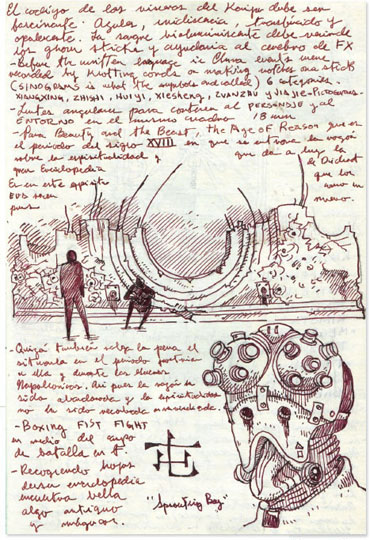 El codigo de los visores del Kaiju debe ser
fascinante. Agulas, translúcido y
opalescente. La sangre bioluminiscente debe
los ghom stricks y ayudaria al cerebro de FX
- Before the written language in China events were
recorded by Knotting cords or making notches on a stick
(SINOGRAMS is what the symbols are called) 6 categories.
XIANGXING, ZHISHI, HUIYI, XIESHENG, ZUANZAU y JIAJIE-
- Lentes angulares para contener al PERSONAJE y al
ENTORNO en el mismo cuadro 18 mm
- Para Beauty and the Beast, the Age of Reason que es
el periodo del siglo XVIII en que se entrona la razón
sobre la espiritualidad y que da a luz la
gran Enciclopedia Diderot
Es en este que los
EUS seran como un
pues
- Quizá tambien valga la pena el
situarla en el periodo
a ella y durante las Guerras
Napoleonicas. Asi pues la razón ha
sido abandonada y la espiritualidad
no ha sido recobrada
- BOXING FIST FIGHT
en medio del campo
de batalla en
- Recogiendo hojas
de su enciclopedia
encuentra bella
algo antiguo
y
"Sprouting Bag"